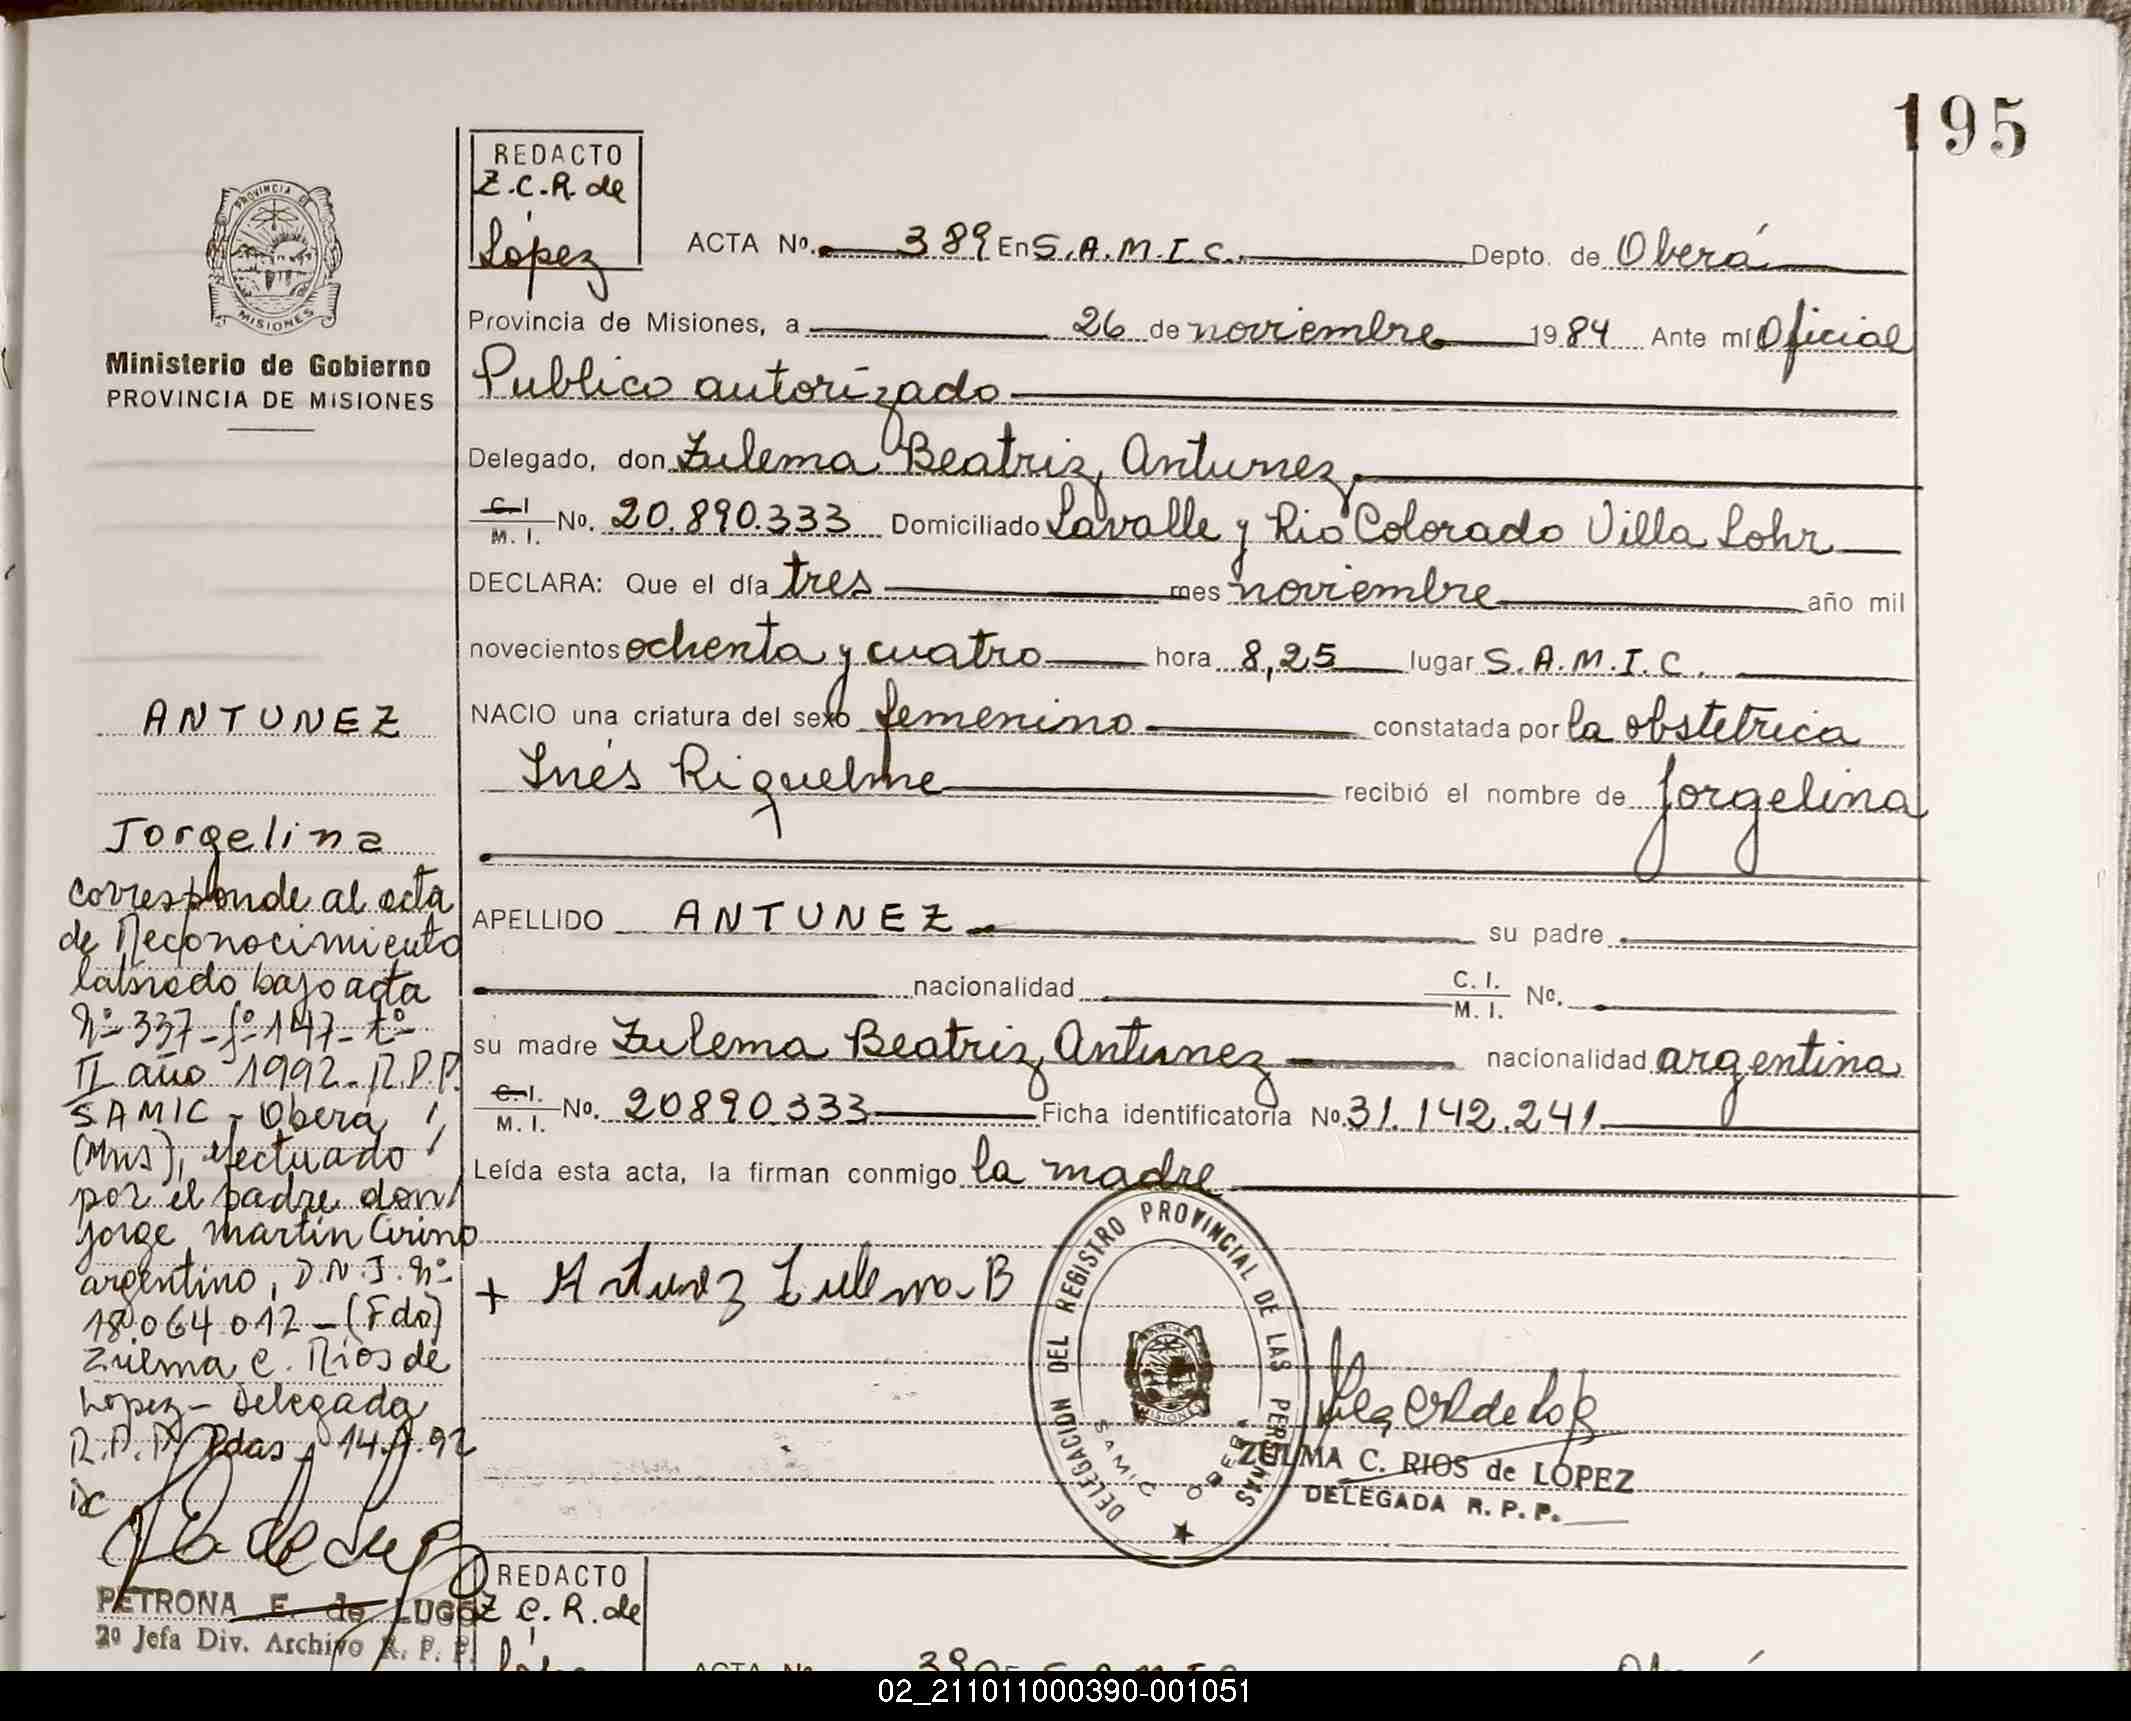 195
REDACTO
Z.C.R. de
López
PROVINCIA DE
MISIONES
Ministerio de Gobierno
PROVINCIA DE MISIONES
ACTA Nº. 389 En S.A.M.I.C. Depto. de Oberá
Provincia de Misiones, a 26 de noviembre 1984 Ante mí Oficial
Publico autorizado
Delegado, don Zulema Beatriz Antunez
C.I. / M.I. Nº. 20.890.333 Domiciliado Lavalle y Rio Colorado Villa Lohr
DECLARA: Que el día tres mes noviembre año mil
novecientos ochenta y cuatro hora 8,25 lugar S.A.M.I.C.
NACIO una criatura del sexo femenino constatada por la obstetrica
Inés Riquelme recibió el nombre de Jorgelina
APELLIDO ANTUNEZ su padre
nacionalidad C.I. / M.I. Nº.
su madre Zulema Beatriz Antunez nacionalidad argentina
C.I. / M.I. Nº. 20890.333 Ficha identificatoria Nº. 31.142.241.
Leída esta acta, la firman conmigo la madre
+ Antunez Zulema B
DELEGACION DEL REGISTRO PROVINCIAL DE LAS PERSONAS
SAMIC OBERA
MISIONES
ZULMA C. RIOS de LOPEZ
DELEGADA R.P.P.
ANTUNEZ
Jorgelina
corresponde al acta
de Reconocimiento
labrado bajo acta
Nº 337-fº 147-tº
II año 1992-R.P.P.
SAMIC - Oberá
(Mns), efectuado
por el padre don
Jorge martín Cirino
argentino, D.N.I. Nº
18.064.012 - (Fdo)
Zulma C. Rios de
López - Delegada
R.P.P. Pdas
PETRONA E. de LUGO
2º Jefa Div. Archivo R.P.P.
REDACTO
Z C.R. de
López
ACTA Nº 390 En S.A.M.I.C. Oberá
02_211011000390-001051